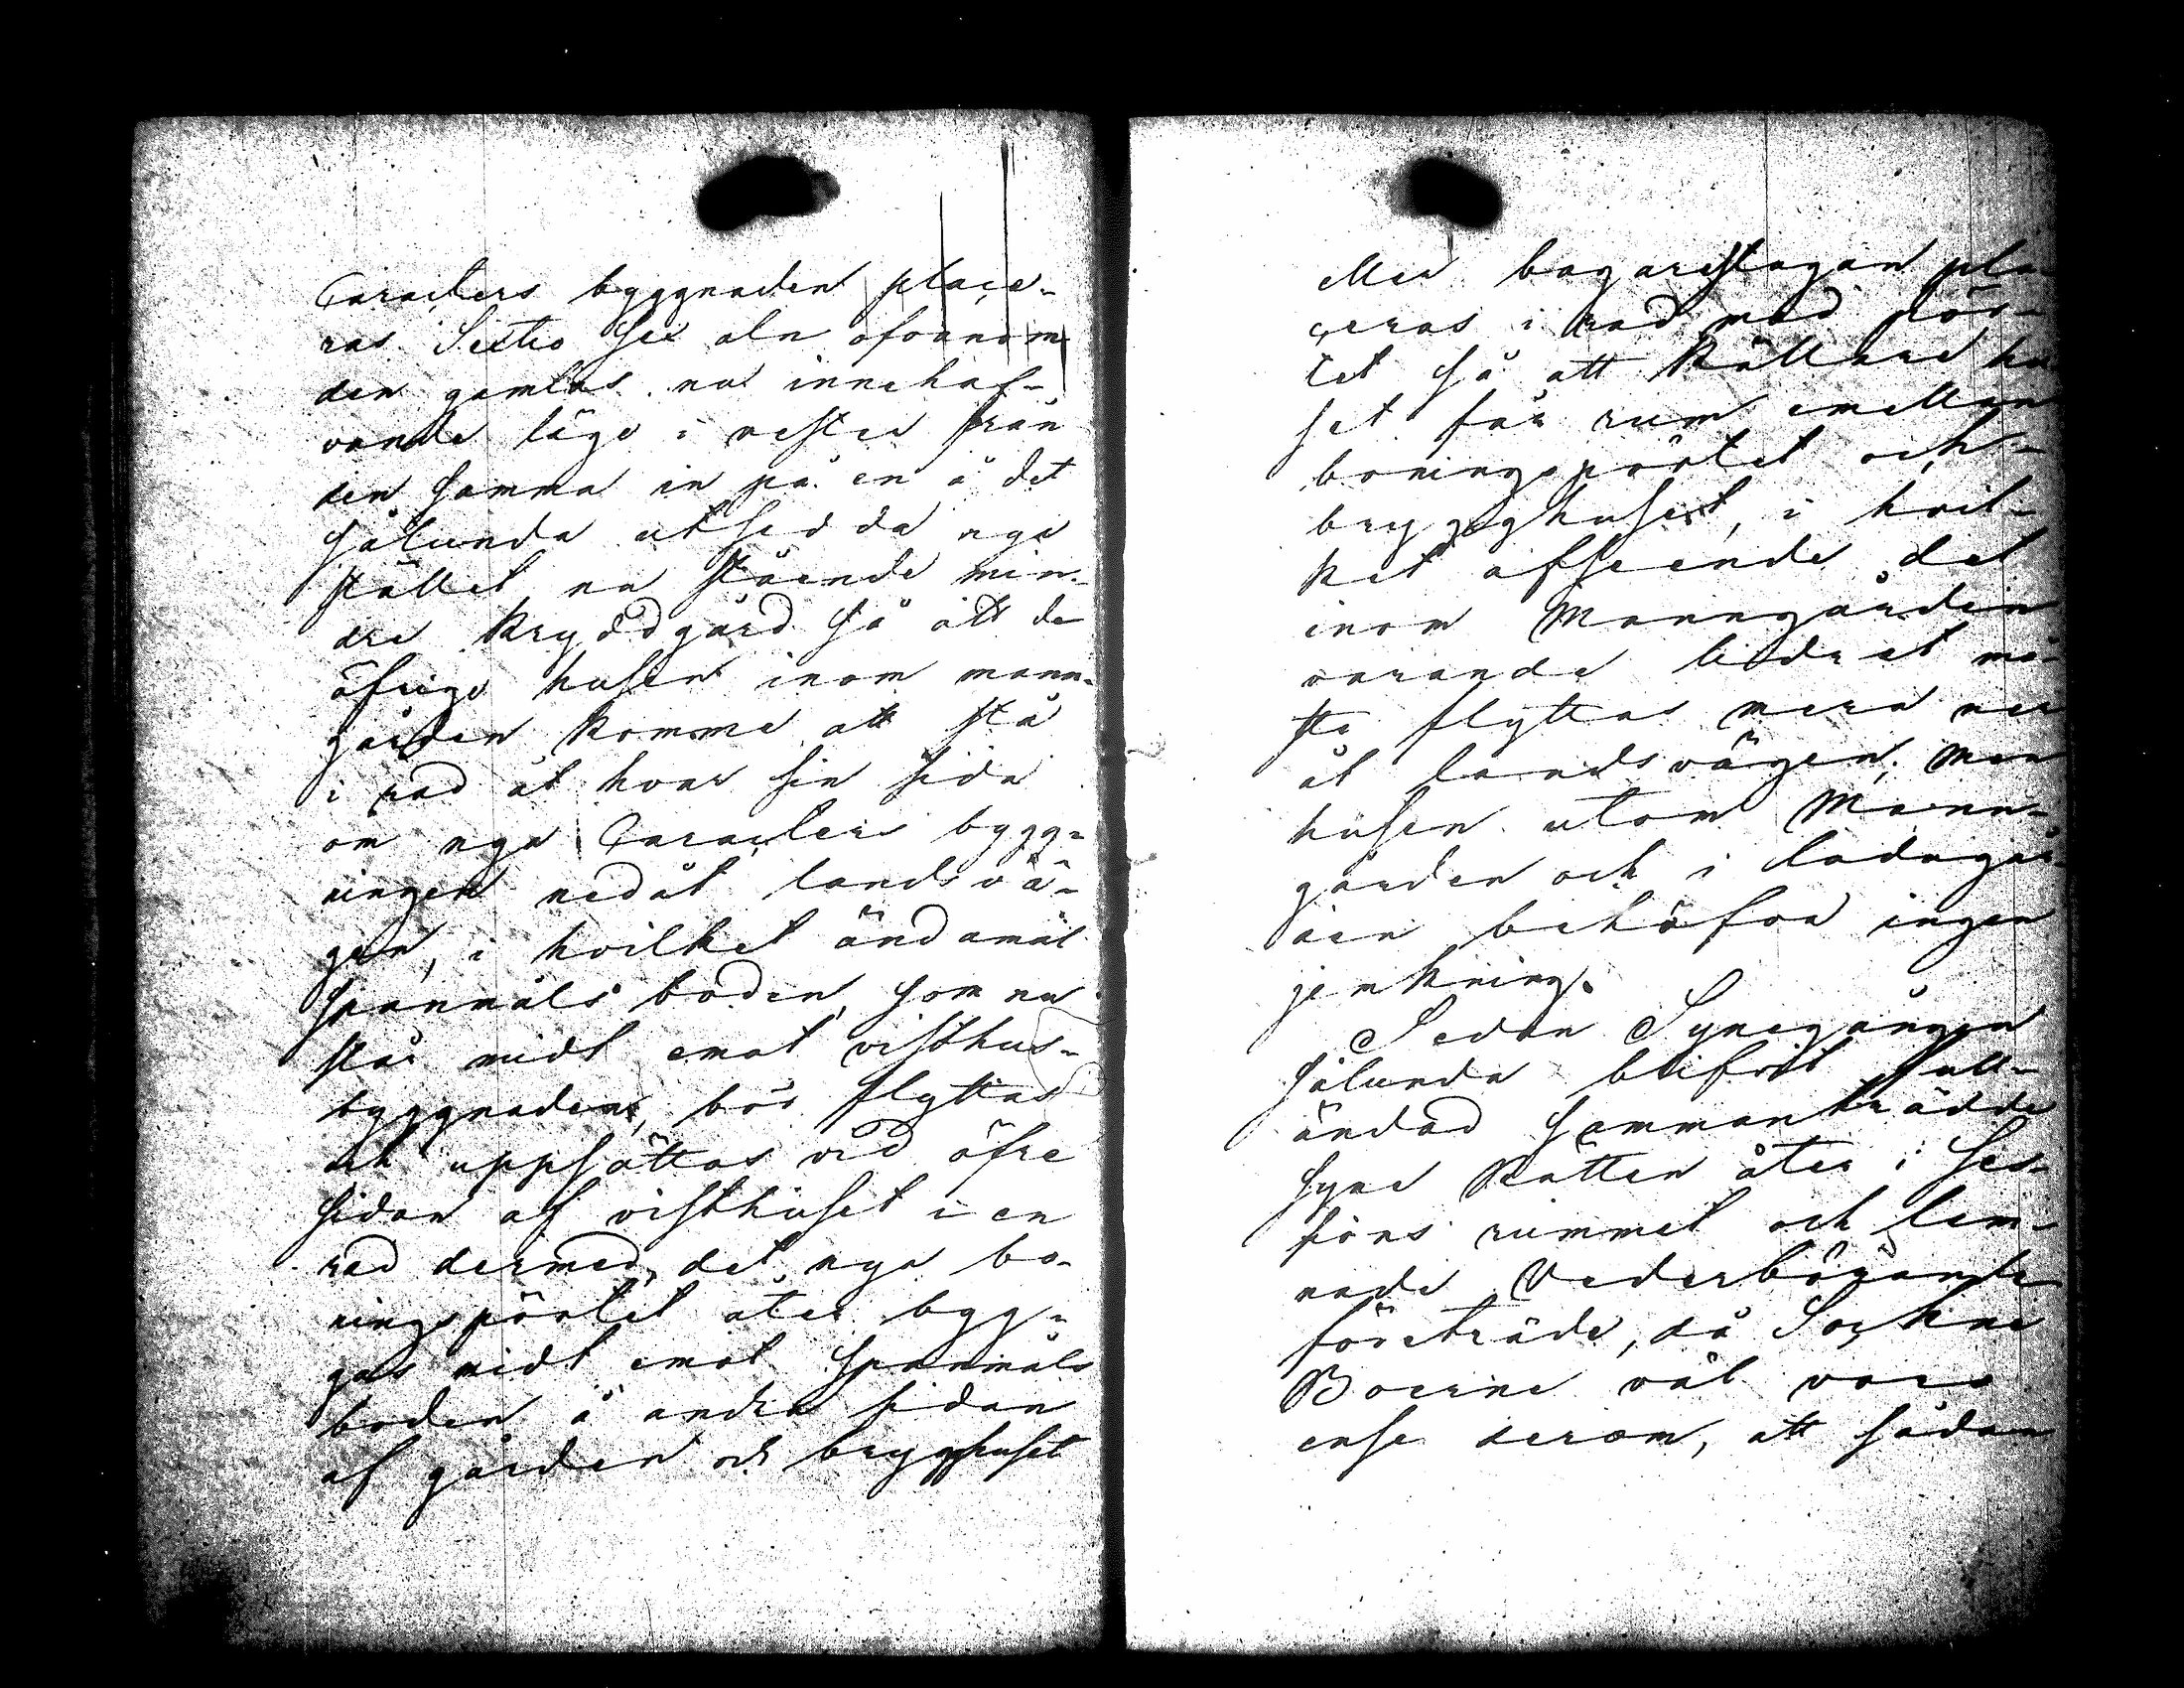 Caracters byggnaden place-
ras Sextio sex aln ofvanom
den gamlas nu innehaf-
vande läge i vester från
den samma in på en å det
sålunda utsedda nya
stället nu stående min-
dre Kryddgård så att de
öfrige husen inom mann-
gården komme att stå
i rad åt hvar sin sida
om nya Caracters bygg-
ningen nedåt landsvä-
gen, i hvilket ändamål
spanmåls boden, som nu
står midt emot visthus-
byggnaden, bör flyttas
och uppsättas vid öfre
sidan af visthuset i en
rad dermed, det nya bo-
ningspörtet åter byg-
gas midt emot spanmåls
boden å andra sidan
af gården och brygghuset
eller bagarestugan pla-
ceras i rad med pör-
tet så att Källare hu
set får rum emellan
boningspörtet och
brygghuset, i hvil-
ket afseende det
inom Manngården
varande lidret må-
ste flyttas mera ner
åt landsvägen; men
husen utom Mann-
gården och i ladugår-
den behöfva ingen
jemkning.
Sedan Synegången
sålunda blifvit full-
ändad sammanträdde
Syne Rätten åter i Ses-
sions rummet och lem-
nade Vederbörande
företräde, då Sockne
Boerne väl voro
ense derom, att sådan